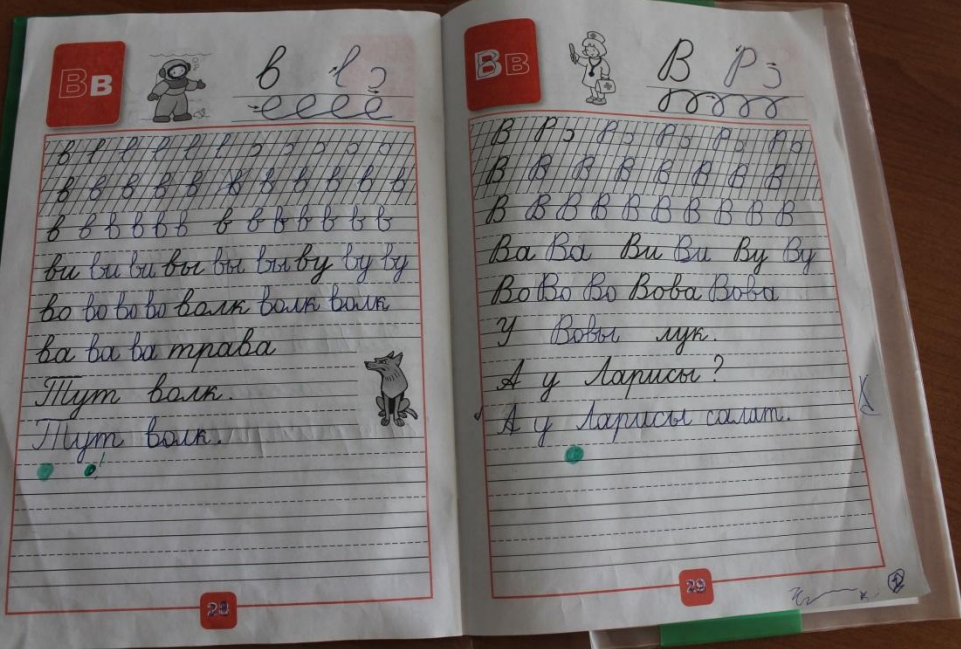 Вв
в
в в в в в в
в в в в в в в в в в в
в в в в в в в в в в в в в
ви ви ви вы вы вы ву ву ву
во во во во волк волк волк
ва ва ва трава
Тут волк.
Тут волк.
!
28
Вв
В
В
В В В В В В В
В В В В В В В В В В
Ва Ва Ви Ви Ву Ву
Во Во Во Вова Вова
У Вовы лук.
А у Ларисы?
А у Ларисы салат.
29